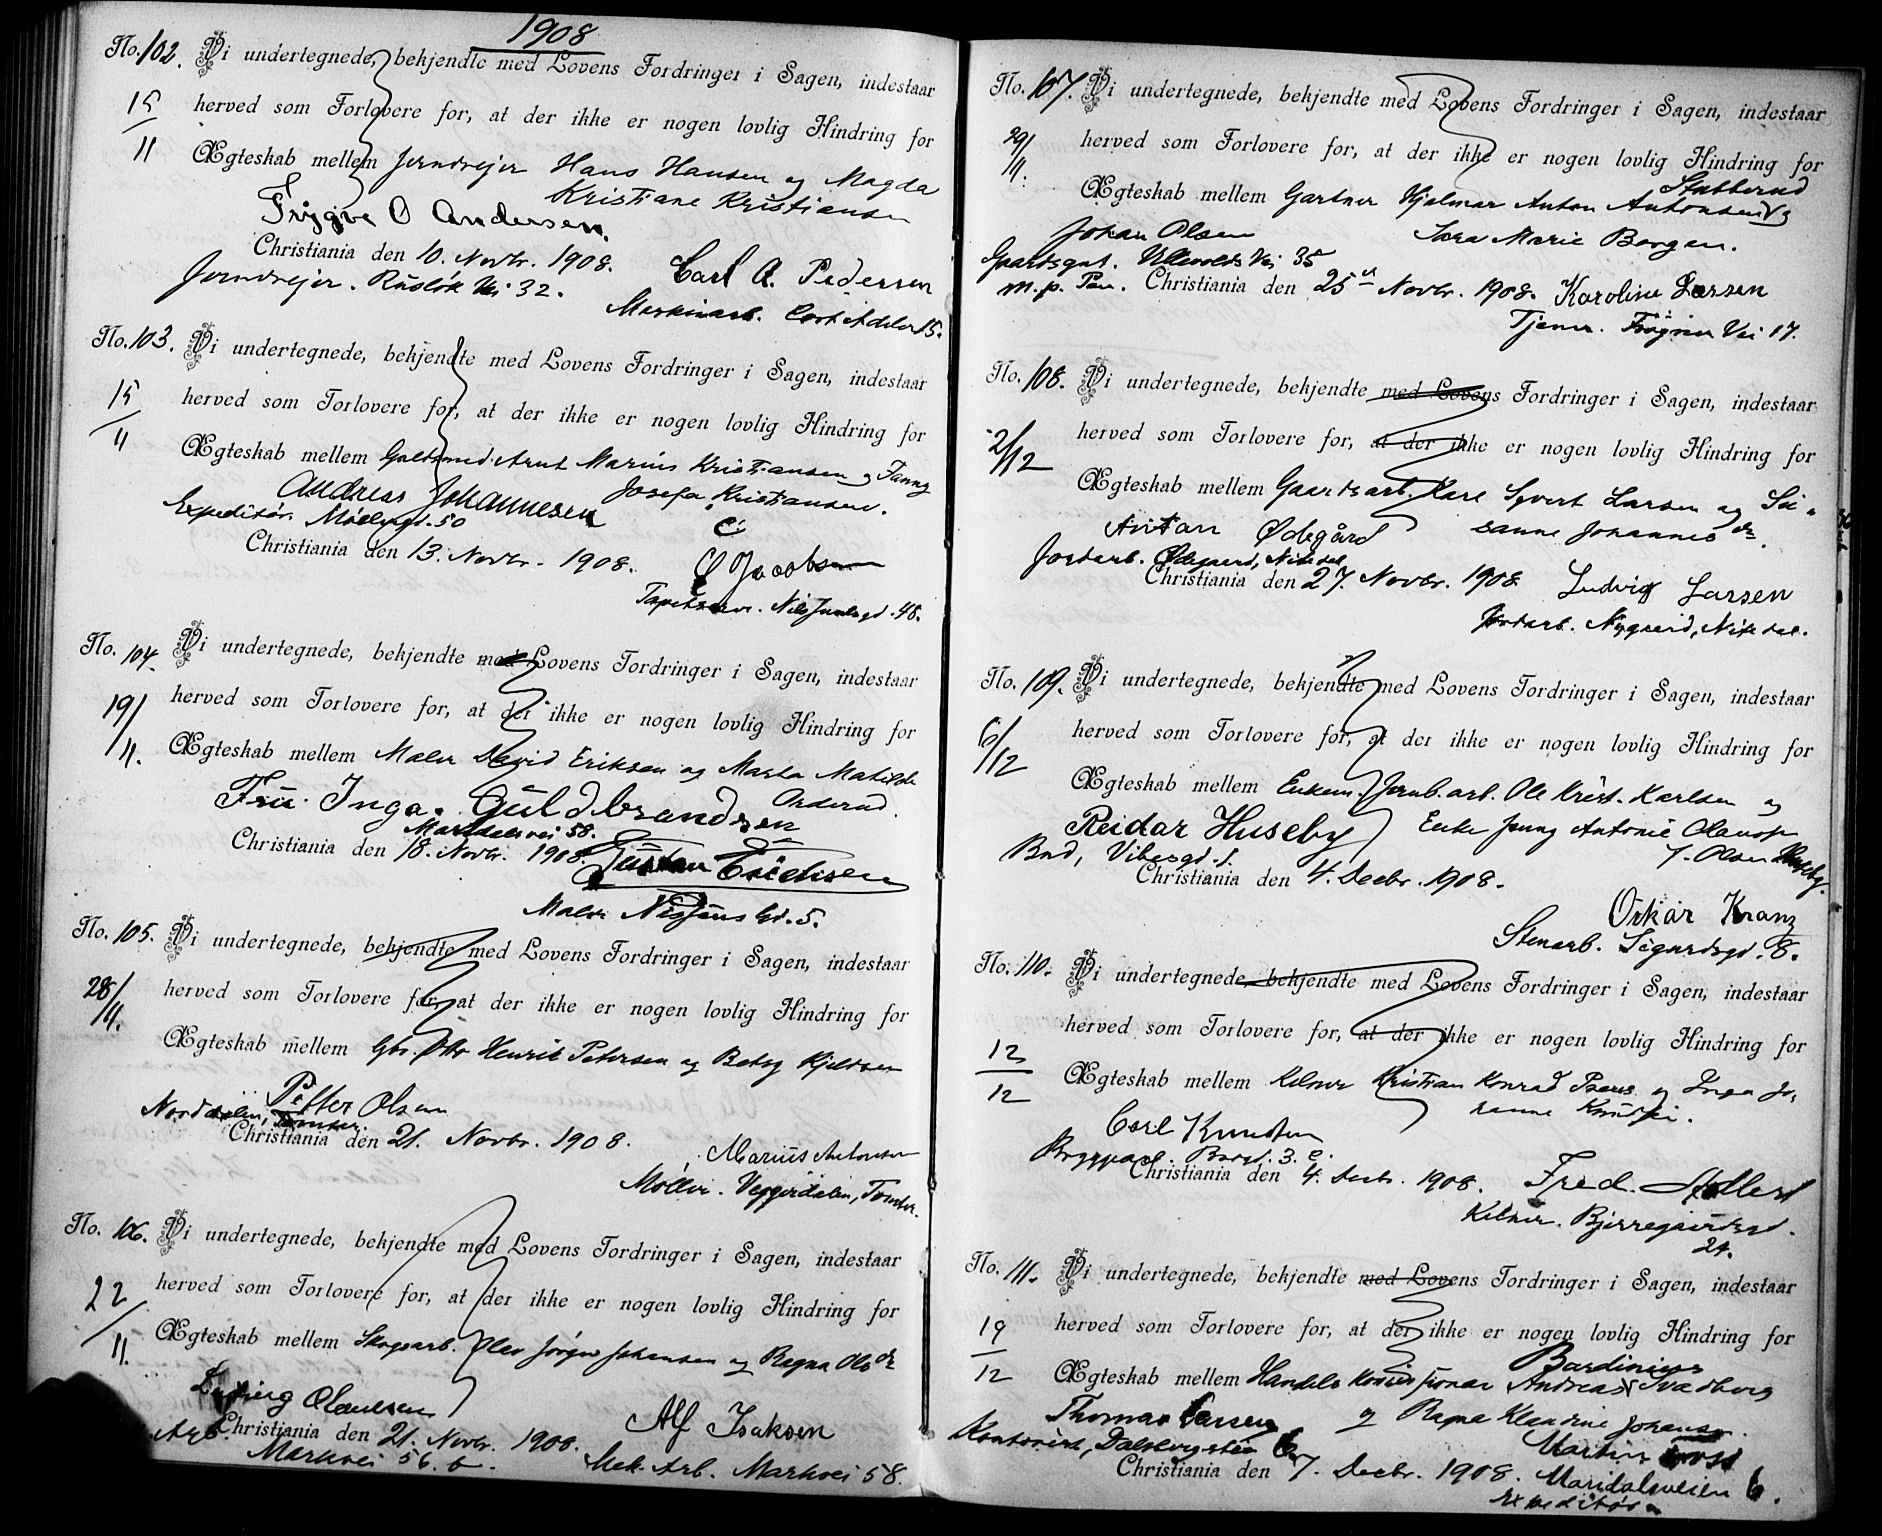 1908
No. 102. Vi undertegnede, bekjendte med Lovens Fordringer i Sagen, indestaar
15/11 herved som Forlovere for, at der ikke er nogen lovlig Hindring for
Ægteskab mellem Jerndrejer Hans Hansen og Magda
Kristiane Kristiansen
Trygve O Andersen.
Christiania den 10. Novbr. 1908. Carl A. Pedersen
Jerndrejer. Rusløk Vei 32.
Maskinarb. Cort Adeler 15.
No. 103. Vi undertegnede, bekjendte med Lovens Fordringer i Sagen, indestaar
15/11 herved som Forlovere for, at der ikke er nogen lovlig Hindring for
Ægteskab mellem Guldsmed. Arnt Marius Kristiansen og Fanny
Josefa Kristiansen.
Andreas Johannesen
Expeditør. Møllergd. 50
Christiania den 13. Novbr. 1908. Jacobsen
Tapetserer. Nils Juelsgd. 48.
No. 104. Vi undertegnede, bekjendte med Lovens Fordringer i Sagen, indestaar
19/11. herved som Forlovere for, at der ikke er nogen lovlig Hindring for
Ægteskab mellem Maler David Eriksen og Marta Matilde
Orderud.
Fru. Inga. Guldbrandsen
Maridalsvei 58.
Christiania den 18. Novbr. 1908. Gustav Erichsen
Maler Gd. 5.
No. 105. Vi undertegnede, bekjendte med Lovens Fordringer i Sagen, indestaar
28/11. herved som Forlovere for, at der ikke er nogen lovlig Hindring for
Ægteskab mellem Gbr. Otto Henrik Petersen og Betsy Kjeldsen
Petter Olsen
Norddalen, Tomter.
Christiania den 21. Novbr. 1908.
Marius Antonsen
Møller. Veggerdalen, Tomter.
No. 106. Vi undertegnede, bekjendte med Lovens Fordringer i Sagen, indestaar
22/11. herved som Forlovere for, at der ikke er nogen lovlig Hindring for
Ægteskab mellem Skogsarb. Olav Jørgen Johansen og Ragna Olsdr
Olausen
Christiania den 21. Novbr. 1908. Alf Isaksen
Arb. Markvei 56. b.
Mek. Arb. Markvei 58.
No. 107. Vi undertegnede, bekjendte med Lovens Fordringer i Sagen, indestaar
29/11. herved som Forlovere for, at der ikke er nogen lovlig Hindring for
Stubberud
Ægteskab mellem Gartner Hjalmar Anton Antonsen og
Sara Marie Borgen.
Johan Olsen
Gaardsgut. Ullevolds Vei 35
m. p. Pen. Christiania den 25de Novbr. 1908. Karoline Larsen
Tjener. Frogner Vei 17.
No. 108. Vi undertegnede, bekjendte med Lovens Fordringer i Sagen, indestaar
2/12 herved som Forlovere for, at der ikke er nogen lovlig Hindring for
Ægteskab mellem Gaardsarb. Karl Syvert Larsen og Su-
sanne Johannesdr.
Anton Ødegård
Jordarb. Ødegaard, Nitedal
Christiania den 27. Novbr. 1908 Ludvig Larsen
Jordarb. Nygaard, Nitedal.
No. 109. Vi undertegnede, bekjendte med Lovens Fordringer i Sagen, indestaar
6/12 herved som Forlovere for, at der ikke er nogen lovlig Hindring for
Ægteskab mellem Enkem. Jernb.arb. Ole Krist. Karlsen og
Enke Jenny Antonie Olava
f. Olsen Huseby.
Reidar Huseby
Bud, Vibesgd. 1.
Christiania den 4. Decbr. 1908.
Oskar Kranz
Stenarb. Sigurdsgd. 8.
No. 110. Vi undertegnede bekjendte med Lovens Fordringer i Sagen, indestaar
12/12 herved som Forlovere for, at der ikke er nogen lovlig Hindring for
Ægteskab mellem Kelner Kristian Konrad og Inga Jo-
sanne Knudsen.
Carl Knudsen
Borgd. 3. c.
Christiania den 4. Decbr. 1908. Fred.
Kelner. Bjerregaardsgd.
24.
No. 111. Vi undertegnede, bekjendte med Lovens Fordringer i Sagen, indestaar
19/12 herved som Forlovere for, at der ikke er nogen lovlig Hindring for
Bardinius
Ægteskab mellem Handels Andreas Svadberg
og Ragna Klaudine Johansen.
Thomas Larsen
Kontorist, Dalsbergstien 6
Christiania den 7. Decbr. 1908. Martin
Maridalsveien 6.
Expeditør